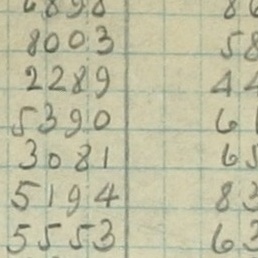 8003 58
2289 44
5390 6
3081 65
5194 83
5553 63